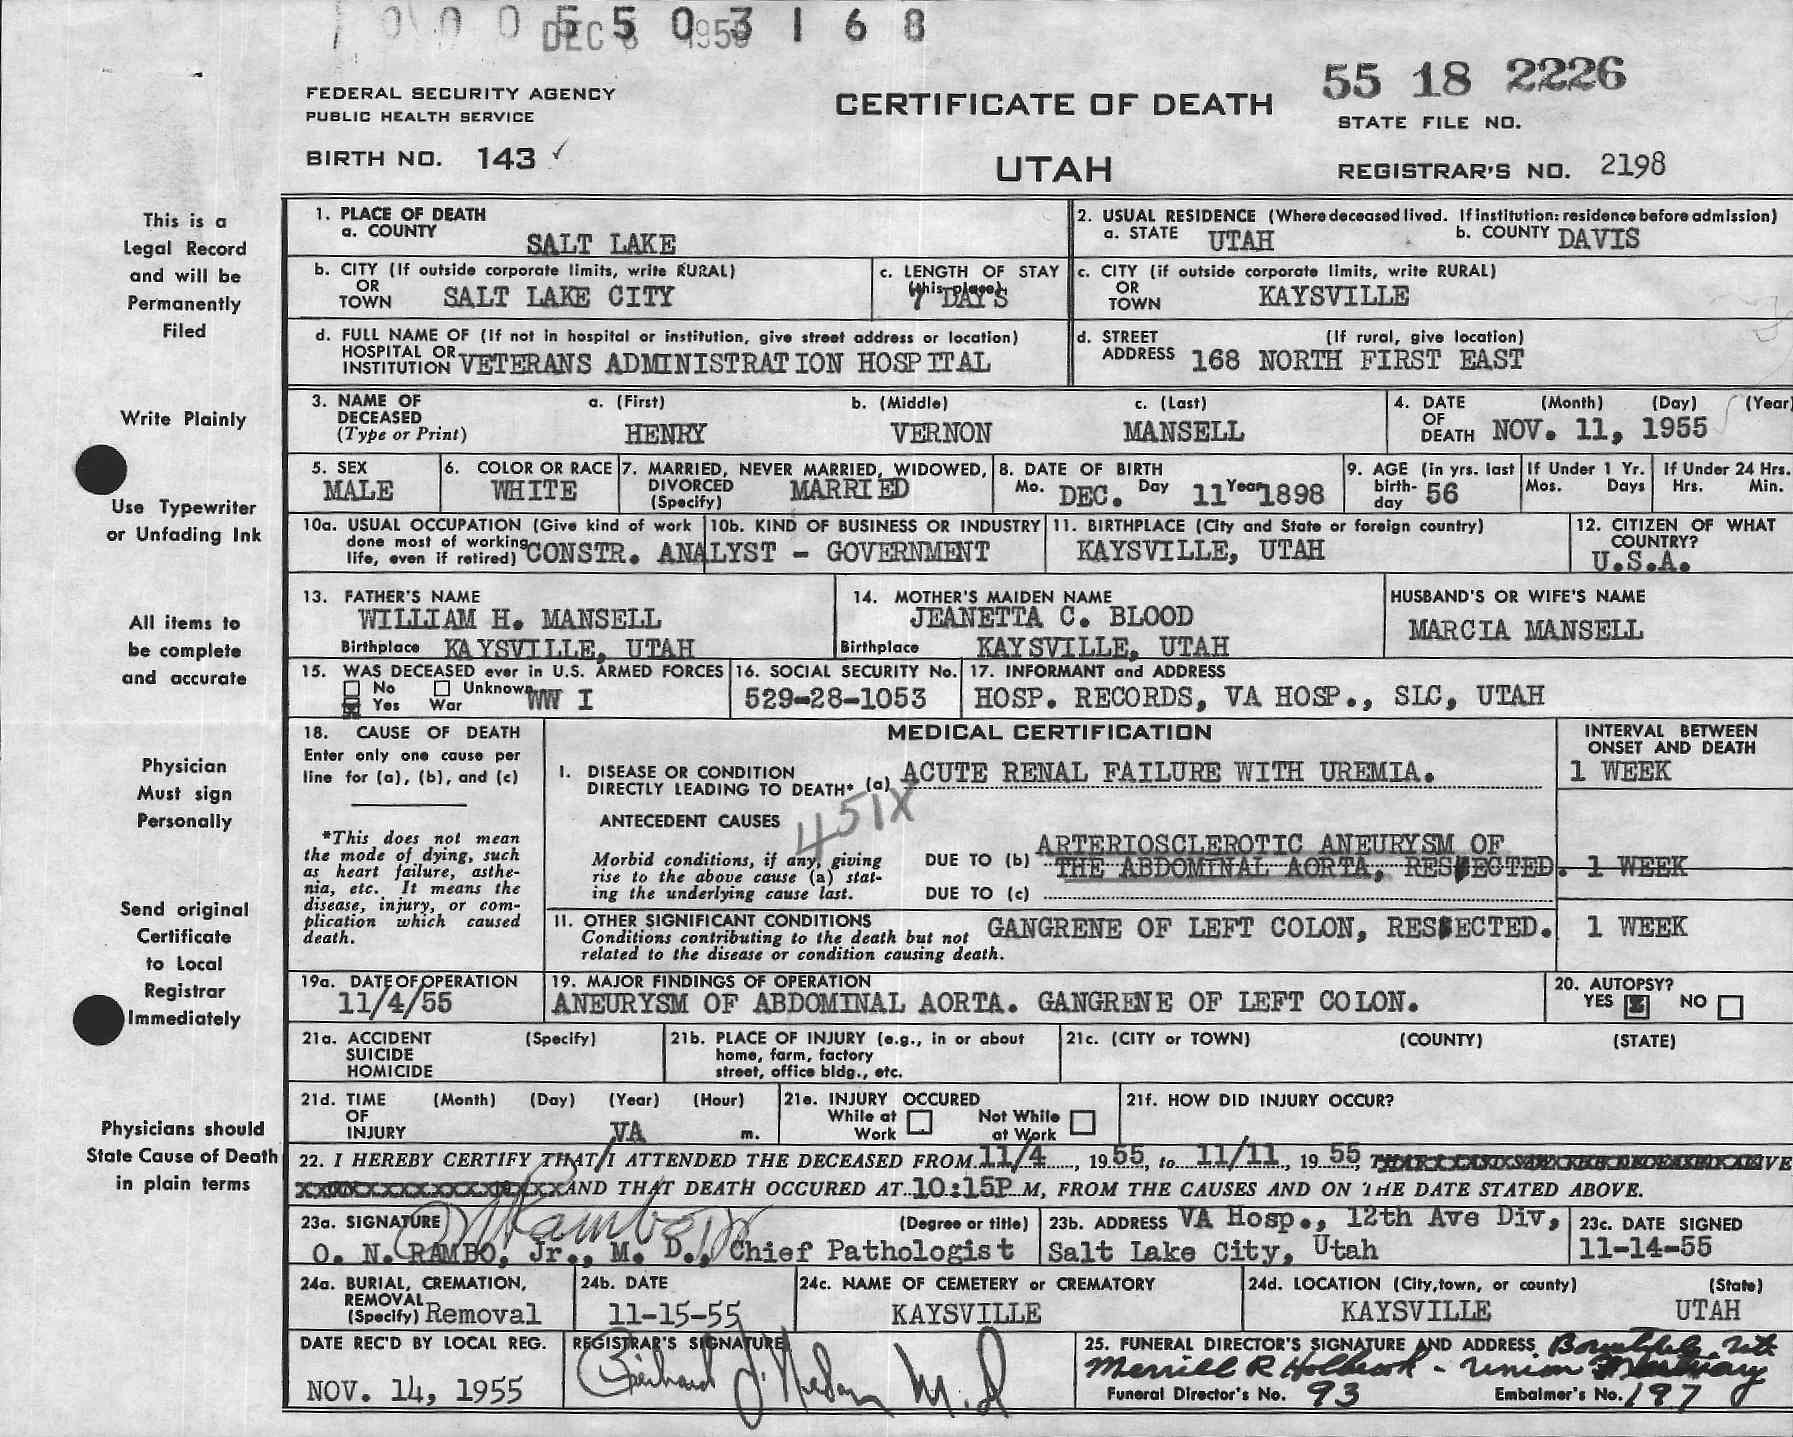 0 0 0 5 5 0 3 1 6 8
DEC 8 1955
FEDERAL SECURITY AGENCY
PUBLIC HEALTH SERVICE
BIRTH NO. 143 ✓
CERTIFICATE OF DEATH
UTAH
55 18 2226
STATE FILE NO.
REGISTRAR'S NO. 2198
This is a
Legal Record
and will be
Permanently
Filed
Write Plainly
Use Typewriter
or Unfading Ink
All items to
be complete
and accurate
Physician
Must sign
Personally
Send original
Certificate
to Local
Registrar
Immediately
Physicians should
State Cause of Death
in plain terms
1. PLACE OF DEATH
a. COUNTY SALT LAKE
2. USUAL RESIDENCE (Where deceased lived. If institution: residence before admission)
a. STATE UTAH b. COUNTY DAVIS
b. CITY (If outside corporate limits, write RURAL)
OR
TOWN SALT LAKE CITY
c. LENGTH OF STAY
(this place)
7 DAYS
c. CITY (if outside corporate limits, write RURAL)
OR
TOWN KAYSVILLE
d. FULL NAME OF (If not in hospital or institution, give street address or location)
HOSPITAL OR
INSTITUTION VETERANS ADMINISTRATION HOSPITAL
d. STREET (If rural, give location)
ADDRESS 168 NORTH FIRST EAST
3. NAME OF a. (First) b. (Middle) c. (Last)
DECEASED
(Type or Print) HENRY VERNON MANSELL
4. DATE (Month) (Day) (Year)
OF
DEATH NOV. 11, 1955
5. SEX
MALE
6. COLOR OR RACE
WHITE
7. MARRIED, NEVER MARRIED, WIDOWED,
DIVORCED MARRIED
(Specify)
8. DATE OF BIRTH
Mo. DEC. Day 11 Year 1898
9. AGE (in yrs. last
birth-
day 56
If Under 1 Yr.
Mos. Days
If Under 24 Hrs.
Hrs. Min.
10a. USUAL OCCUPATION (Give kind of work
done most of working
life, even if retired) CONSTR. ANALYST - GOVERNMENT
10b. KIND OF BUSINESS OR INDUSTRY
11. BIRTHPLACE (City and State or foreign country)
KAYSVILLE, UTAH
12. CITIZEN OF WHAT
COUNTRY?
U.S.A.
13. FATHER'S NAME
WILLIAM H. MANSELL
Birthplace KAYSVILLE, UTAH
14. MOTHER'S MAIDEN NAME
JEANETTA C. BLOOD
Birthplace KAYSVILLE, UTAH
HUSBAND'S OR WIFE'S NAME
MARCIA MANSELL
15. WAS DECEASED ever in U.S. ARMED FORCES
No Unknown
Yes War WW I
16. SOCIAL SECURITY No.
529-28-1053
17. INFORMANT and ADDRESS
HOSP. RECORDS, VA HOSP., SLC, UTAH
18. CAUSE OF DEATH
Enter only one cause per
line for (a), (b), and (c)
*This does not mean
the mode of dying, such
as heart failure, asthe-
nia, etc. It means the
disease, injury, or com-
plication which caused
death.
MEDICAL CERTIFICATION
INTERVAL BETWEEN
ONSET AND DEATH
I. DISEASE OR CONDITION
DIRECTLY LEADING TO DEATH* (a) ACUTE RENAL FAILURE WITH UREMIA.
1 WEEK
451X
ANTECEDENT CAUSES
Morbid conditions, if any, giving
rise to the above cause (a) stat-
ing the underlying cause last.
DUE TO (b) ARTERIOSCLEROTIC ANEURYSM OF
THE ABDOMINAL AORTA, RESECTED. 1 WEEK
DUE TO (c)
II. OTHER SIGNIFICANT CONDITIONS
Conditions contributing to the death but not
related to the disease or condition causing death.
GANGRENE OF LEFT COLON, RESECTED. 1 WEEK
19a. DATE OF OPERATION
11/4/55
19. MAJOR FINDINGS OF OPERATION
ANEURYSM OF ABDOMINAL AORTA. GANGRENE OF LEFT COLON.
20. AUTOPSY?
YES X NO
21a. ACCIDENT (Specify)
SUICIDE
HOMICIDE
21b. PLACE OF INJURY (e.g., in or about
home, farm, factory
street, office bldg., etc.
21c. (CITY or TOWN) (COUNTY) (STATE)
21d. TIME (Month) (Day) (Year) (Hour)
OF
INJURY m.
VA
21e. INJURY OCCURED
While at Not While
Work at Work
21f. HOW DID INJURY OCCUR?
22. I HEREBY CERTIFY THAT/I ATTENDED THE DECEASED FROM 11/4, 1955, to 11/11, 1955, THAT I LAST SAW THE DECEASED ALIVE
AND THAT DEATH OCCURED AT 10:15P M, FROM THE CAUSES AND ON THE DATE STATED ABOVE.
23a. SIGNATURE (Degree or title)
O. N. RAMBO, Jr., M. D., Chief Pathologist
23b. ADDRESS VA Hosp., 12th Ave Div,
Salt Lake City, Utah
23c. DATE SIGNED
11-14-55
24a. BURIAL, CREMATION,
REMOVAL
(Specify) Removal
24b. DATE
11-15-55
24c. NAME OF CEMETERY or CREMATORY
KAYSVILLE
24d. LOCATION (City, town, or county) (State)
KAYSVILLE UTAH
DATE REC'D BY LOCAL REG.
NOV. 14, 1955
REGISTRAR'S SIGNATURE
M.D
25. FUNERAL DIRECTOR'S SIGNATURE AND ADDRESS
Merrill R Holbrook - Union Mortuary
Funeral Director's No. 93 Embalmer's No. 197